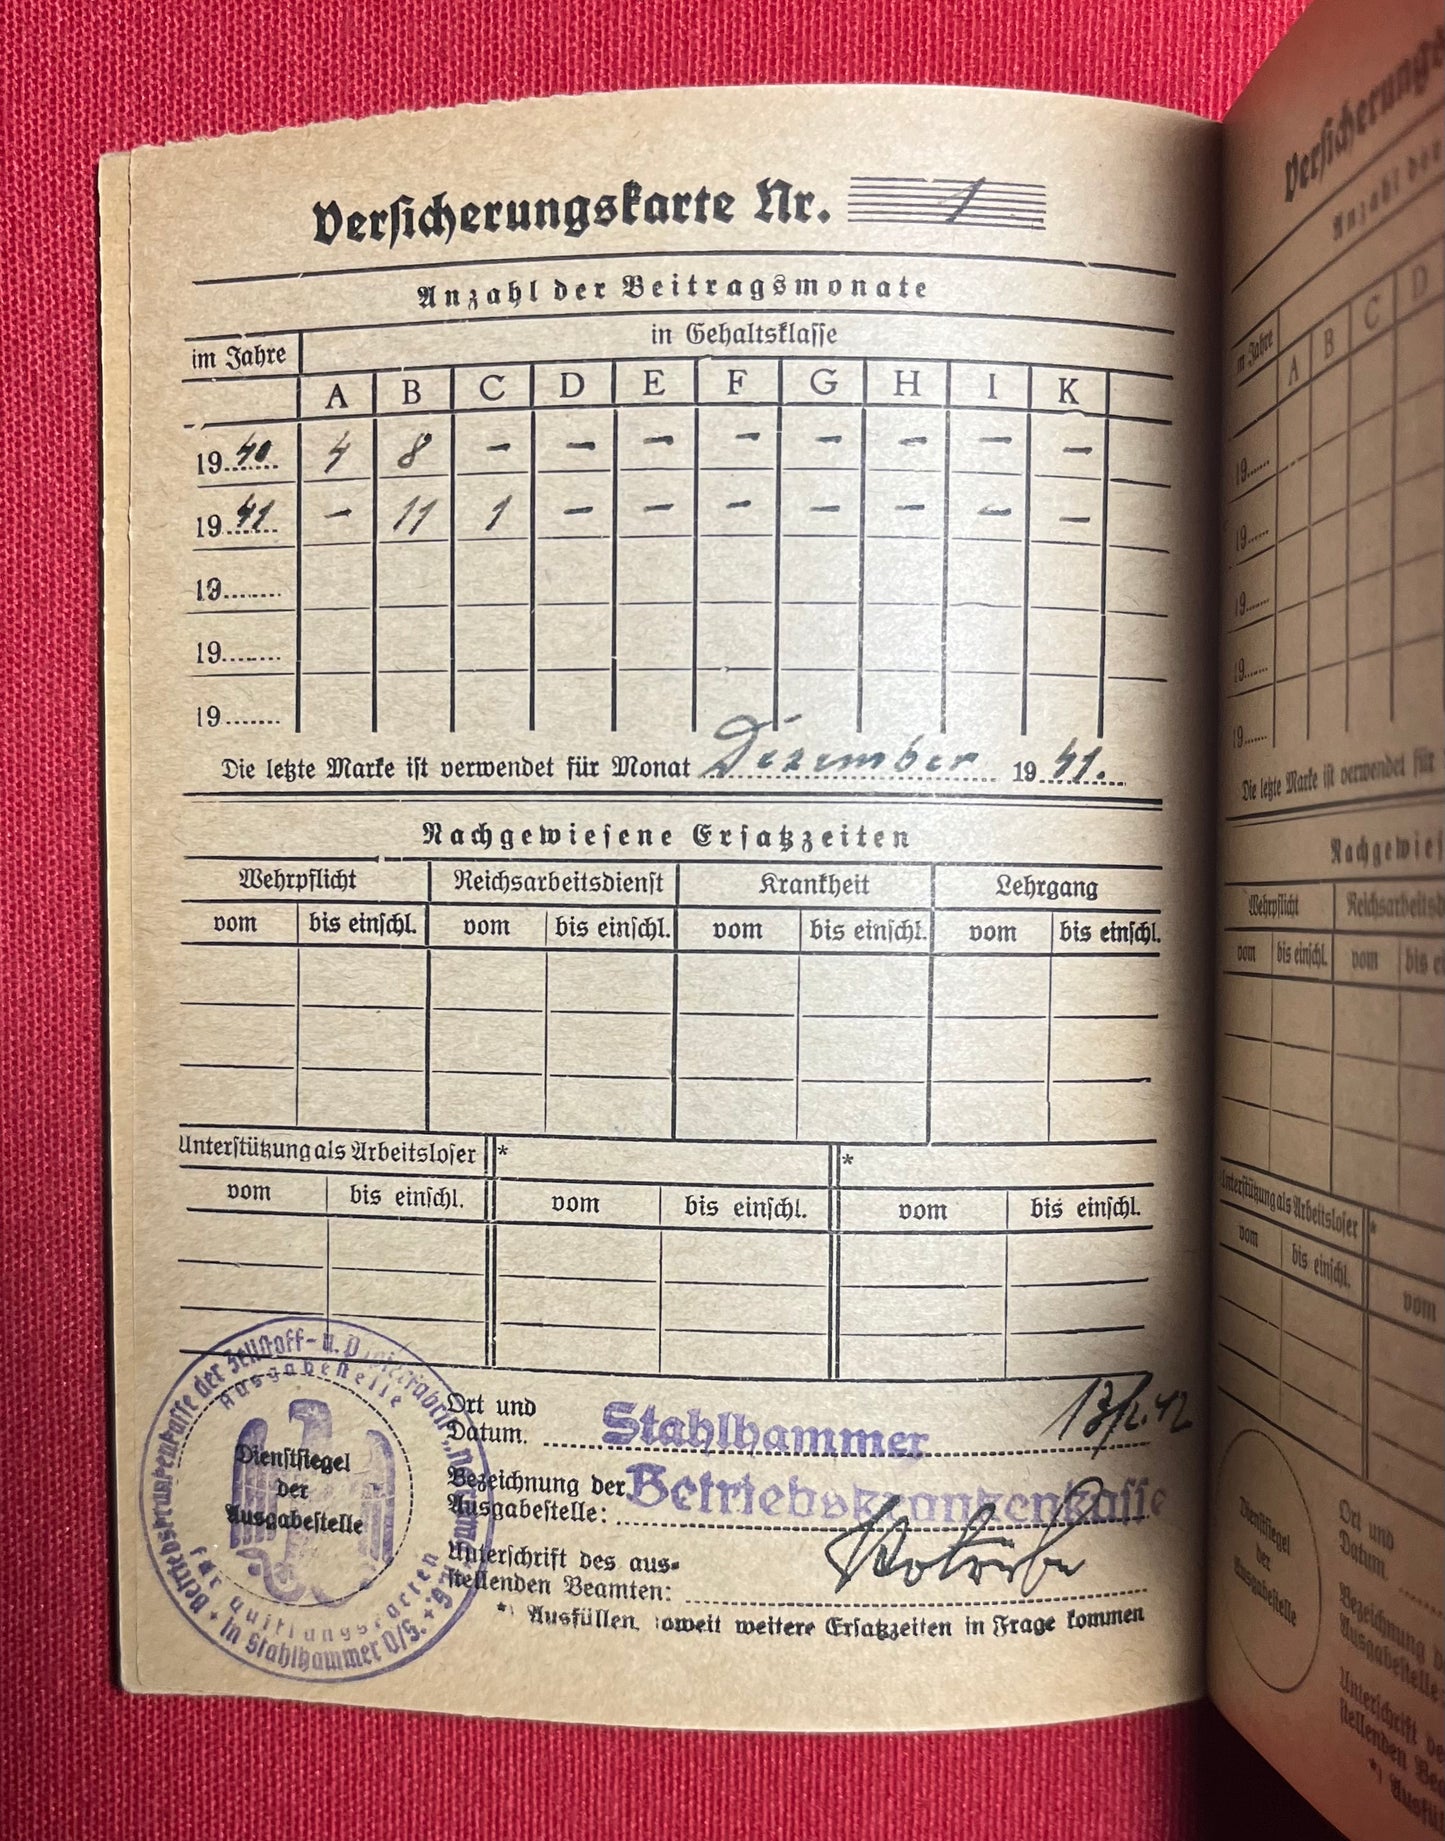 Versicherungskarte Nr. 1
Anzahl der Beitragsmonate
im Jahre in Gehaltsklasse
A B C D E F G H I K
19 40 4 8 – – – – – – – –
19 41 – 11 1 – – – – – – –
19
19
19
Die letzte Marke ist verwendet für Monat Dezember 19 41.
Nachgewiesene Ersatzzeiten
Wehrpflicht Reichsarbeitsdienst Krankheit Lehrgang
vom bis einschl. vom bis einschl. vom bis einschl. vom bis einschl.
Unterstützung als Arbeitsloser * *
vom bis einschl. vom bis einschl. vom bis einschl.
Ort und
Datum. Stahlhammer 13/2.42
Bezeichnung der
Ausgabestelle: Betriebskrankenkasse
Unterschrift des aus-
stellenden Beamten:
*) Ausfüllen, soweit weitere Ersatzzeiten in Frage kommen
Betriebskrankenkasse der Zellstoff- u. Papierfabrik
in Stahlhammer O/S.
Ausgabestelle
für Quittungskarten
Dienstsiegel
der
Ausgabestelle
Versicherungs
Anzahl der
im Jahre
A B C D
19
19
19
19
19
Die letzte Marke ist verwendet für
Nachgewies
Wehrpflicht Reichsarbeitsd
vom bis einschl. vom bis e
Unterstützung als Arbeitsloser *
vom bis einschl. vom
Dienstsiegel
der
Ausgabestelle
Ort und
Datum.
Bezeichnung d
Ausgabestelle
Unterschrift de
stellenden Bea
*) Ausfü